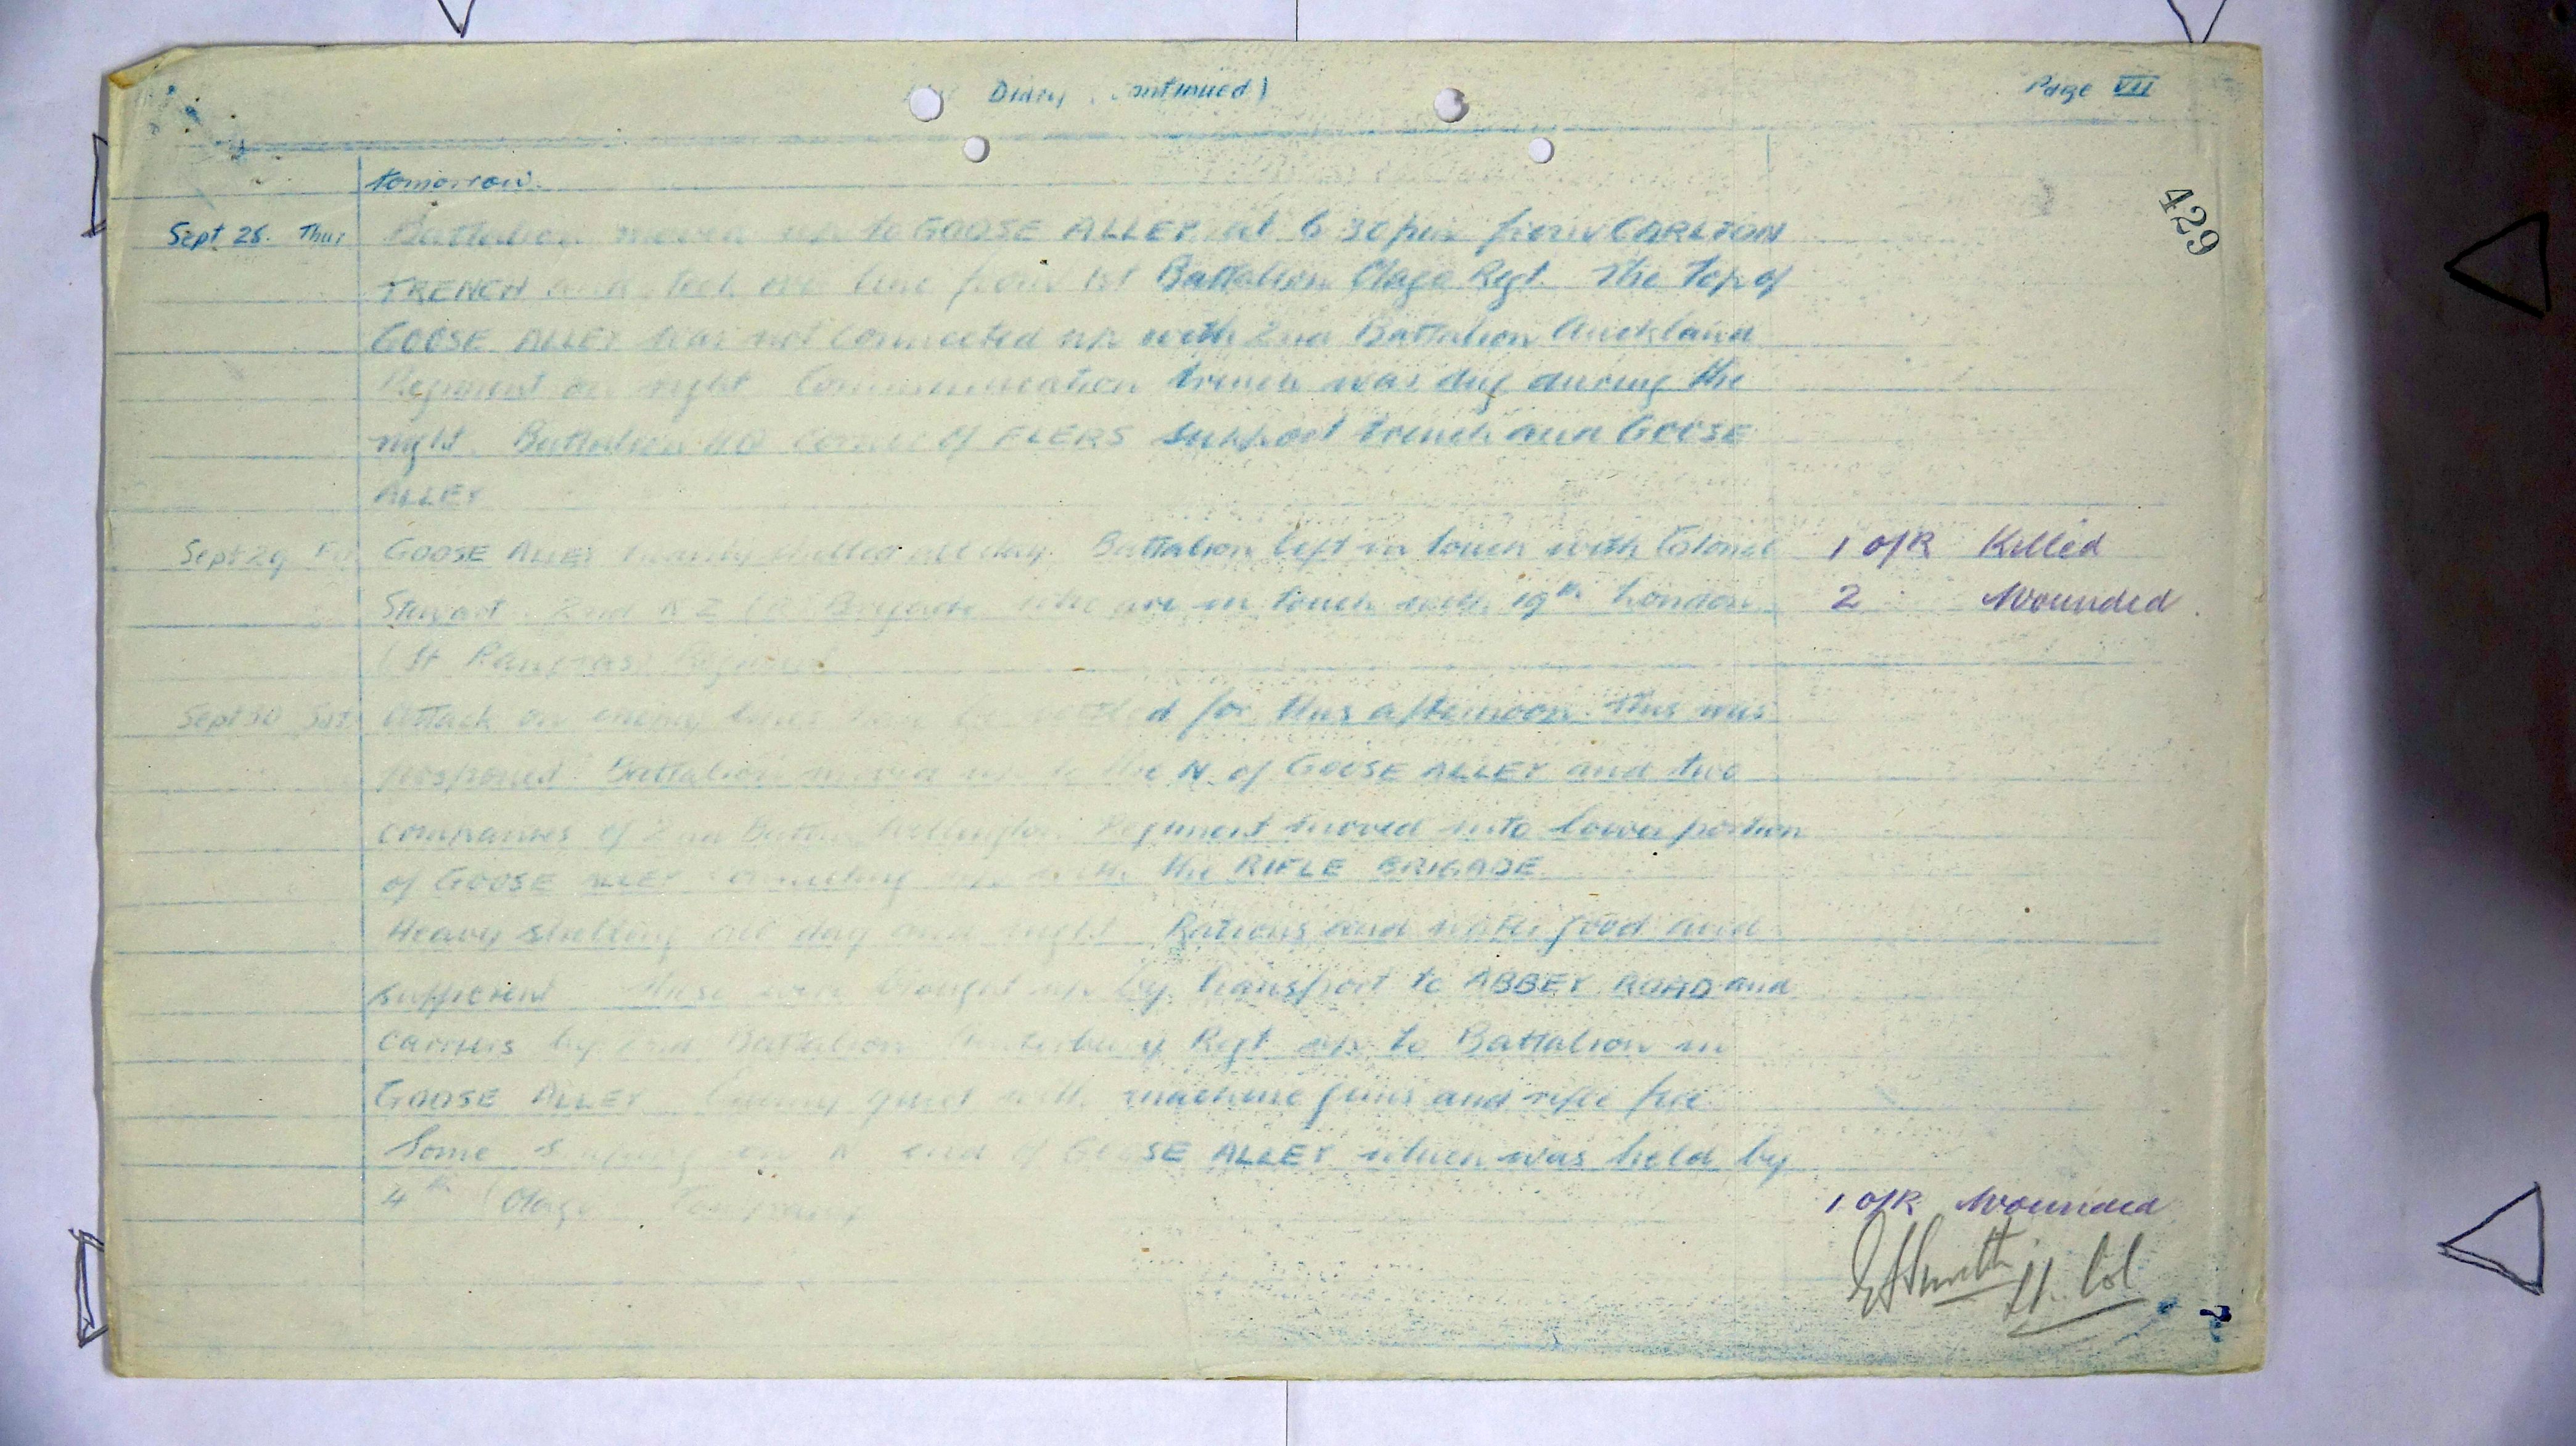 Diary, Continued)
Page VII
429
tomorrow.
Sept 28. Thur Battalion moved up to GOOSE ALLEY at 6 30 pm from CARLTON
TRENCH and took over line from 1st Battalion Otago Regt. The top of
GOOSE ALLEY was not connected up with 2nd Battalion Auckland
Regiment on right Communication trench was dug during the
night. Battalion HQ corner of FLERS support trench and GOOSE
ALLEY
Sept 29 Fri GOOSE ALLEY heavily shelled all day. Battalion left in touch with Colonel 1 O/R Killed
Stewart. 2nd N Z (R) Brigade who are in touch with 19th London 2 Wounded.
(St Pancras) Regiment
Sept 30 Sat Attack on enemy lines for this afternoon. This was
postponed. Battalion moved up to the N. of GOOSE ALLEY and two
companies of 2nd Battn Wellington Regiment moved into lower portion
of GOOSE ALLEY connecting up with the RIFLE BRIGADE
Heavy shelling all day and night Rations and water good and
sufficient These were brought up by transport to ABBEY ROAD and
carriers by 2nd Battalion Canterbury Regt up to Battalion in
GOOSE ALLEY Enemy quiet with machine guns and rifle fire
Some sniping on N end of GOOSE ALLEY which was held by
4th (Otago) Company
1 O/R Wounded
Smith Lt. Col